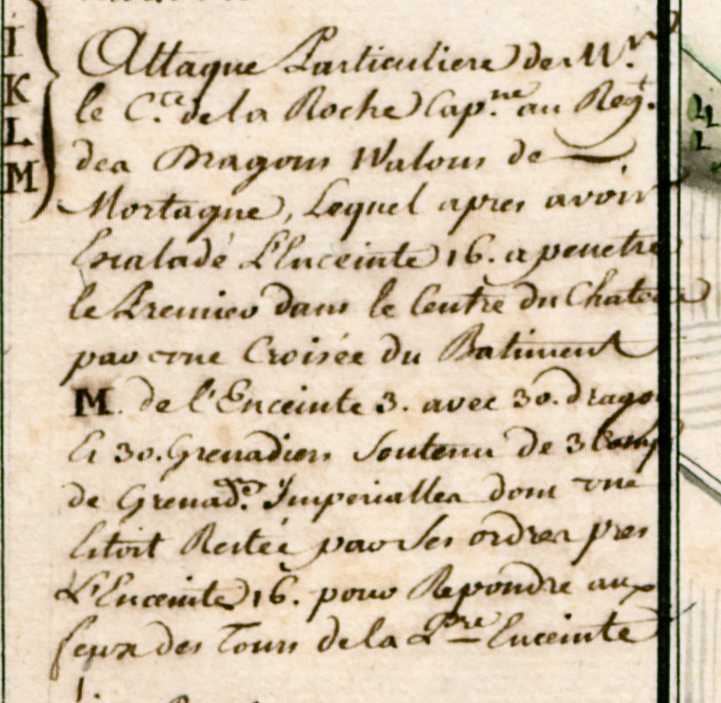 I
K
L
M
Attaque Particuliere de Mr.
le C.te de la Roche Cap.ne au Regt.
des Dragons Walons de
Mortagne, Lequel apres avoir
Escaladé L'Enceinte 16. a penetré
le Premier dans le Centre du Chateau
par une Croisée du Batiment
M. de l'Enceinte 3. avec 30. drago
Et 30. Grenadiers Soutenu de 3 Comp
de Grenad.rs Imperialles dont une
Estoit Restée par Ses ordres pres
L'Enceinte 16. pour Repondre aux
feux des Tours de la Pre Enceinte
1.